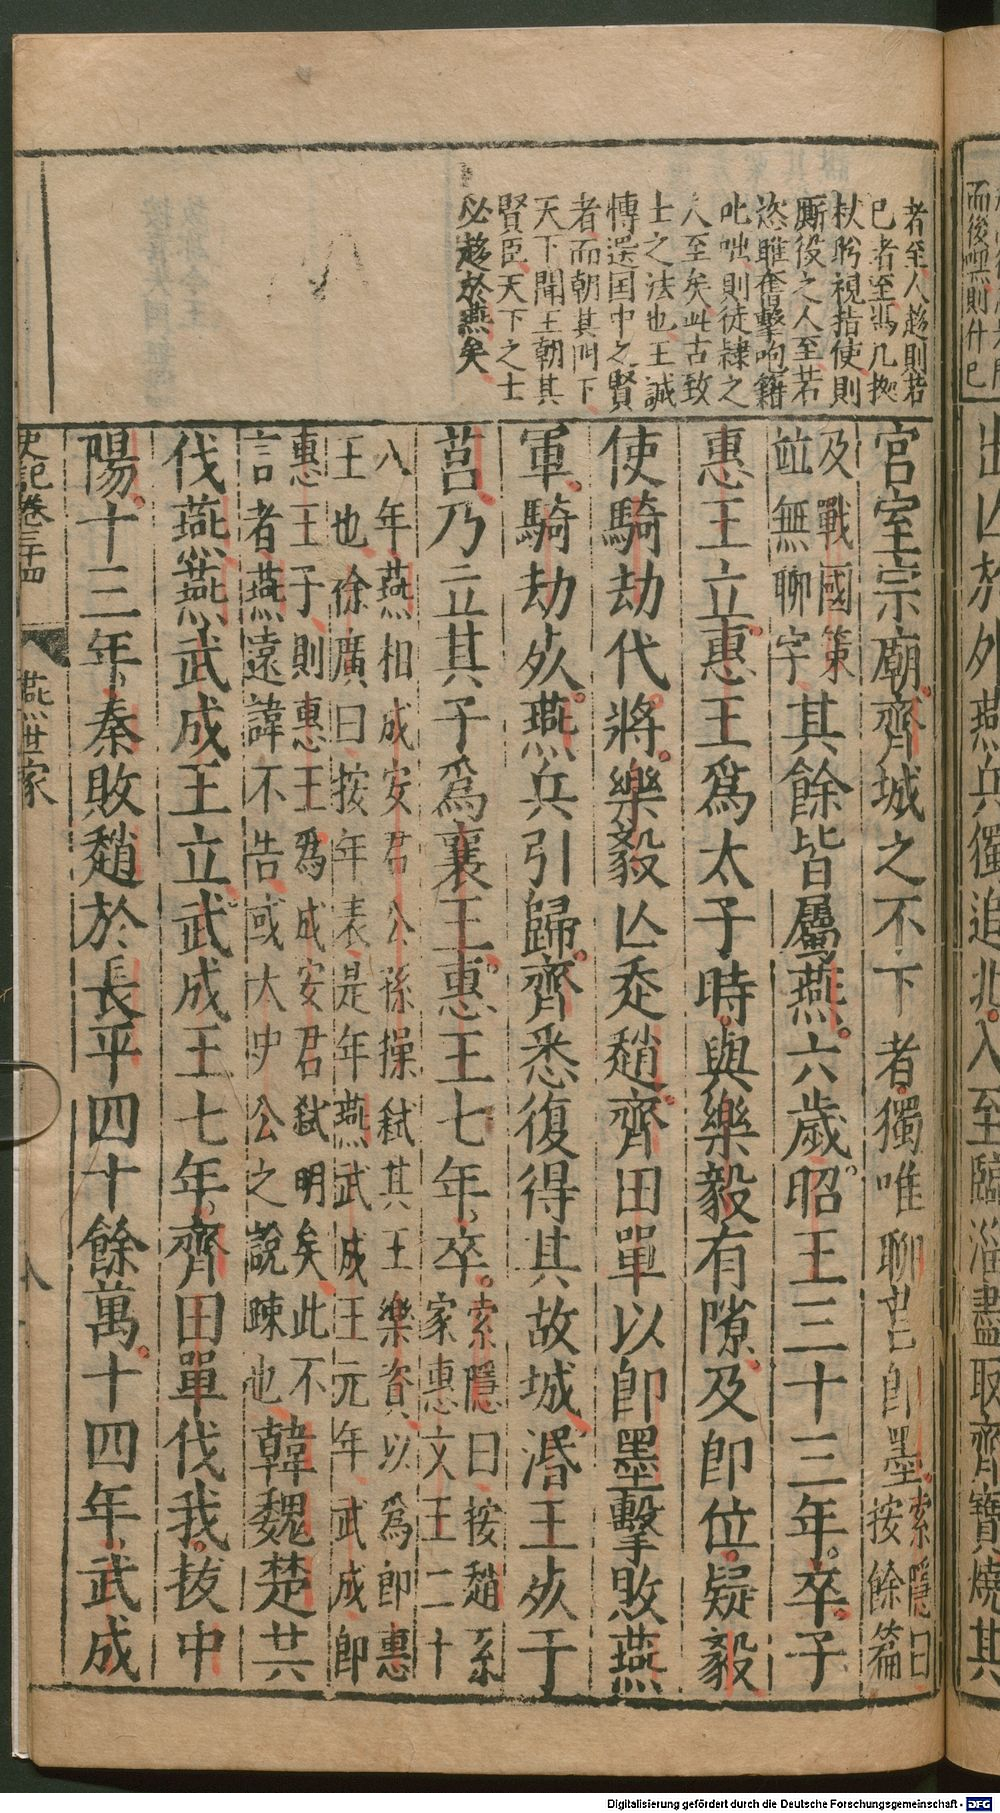 而後嘿則什巳
出亡於外燕兵獨追北入至臨淄盡取齊寶燒其
者至人趍則若
巳者至馮几㨿
杖眄視指使則
厮役之人至若
恣睢奮擊呴籍
叱咄則徒隸之
人至矣此古致
士之法也王誠
愽選国中之賢
者而朝其門下
天下聞王朝其
賢臣天下之士
必趍於燕矣
宮室宗廟齊城之不下者獨唯聊莒卽墨索隱曰
按餘篇
及戰國策
並無聊字其餘皆屬燕六歲昭王三十三年卒子
惠王立惠王爲太子時與樂毅有隙及卽位疑毅
使騎劫代將樂毅亾走趙齊田單以卽墨擊敗燕
軍騎劫死燕兵引歸齊悉復得其故城湣王死于
莒乃立其子爲襄王惠王七年卒索隱曰按趙系
家惠文王二十
八年燕相成安君公孫操弑其王樂資以爲卽惠
王也徐廣曰按年表是年燕武成王元年武成卽
惠王子則惠王爲成安君弑明矣此不
言者燕遠諱不告或大史公之說疎也韓魏楚共
伐燕燕武成王立武成王七年齊田單伐我拔中
陽十三年秦敗趙於長平四十餘萬十四年武成
史記卷三十四 燕世家 八
Digitalisierung gefördert durch die Deutsche Forschungsgemeinschaft - DFG